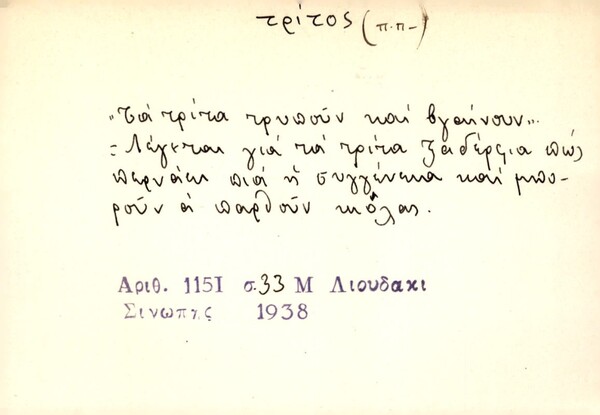 τρίτος (π.π-)
"Τά τρίτα τρυπούν καί βγαίνουν".
= Λέγεται γιά τά τρίτα ξαδέρφια πώς
περνάει πιά ἡ συγγένεια καί μπο-
ρούν ά παρθούν κιόλας.
Αριθ. 1151 σ. 33 Μ Λιουδακι
Σινωπης 1938